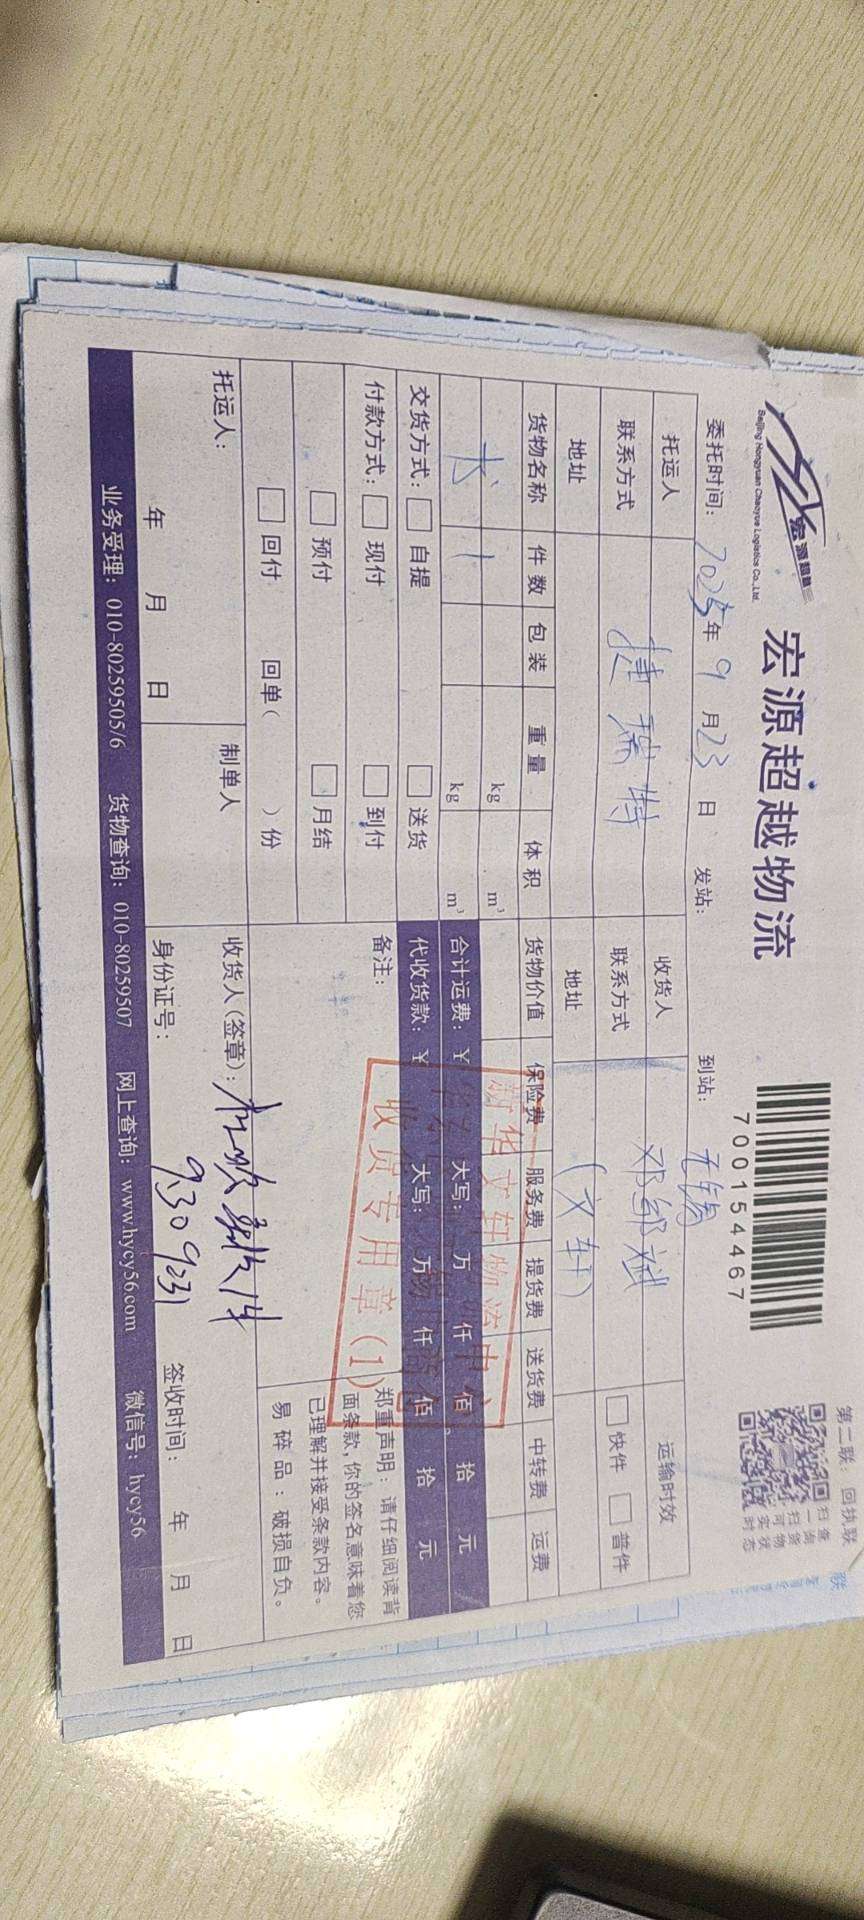 宏源超越
Beijing Hongyuan Chaoyue Logistics Co., Ltd.
宏源超越物流
700154467
第二联：回执联
扫一扫
查询货物实时状态
委托时间：2025年9月23日 发站： 到站：无锡
托运人 捷瑞特 收货人 运输时效
联系方式 联系方式 快件 普件
地址 地址 (文轩)
货物名称 件数 包装 重量 体积 货物价值 保险费 服务费 提货费 送货费 中转费 运费
kg m³
书 1 kg m³ 合计运费：¥ 大写： 万 仟 佰 拾 元
交货方式： 自提 送货 代收货款：¥ 大写： 万 仟 佰 拾 元
付款方式： 现付 到付 备注：
预付 月结
回付 回单( )份
新华文轩物流中心
收货专用章(1)
郑重声明：请仔细阅读背
面条款，你的签名意味着您
已理解并接受条款内容。
易碎品：破损自负。
托运人： 制单人 收货人(签章)：
年 月 日 身份证号： 签收时间： 年 月 日
业务受理：010-80259505/6 货物查询：010-80259507 网上查询：www.hycy56.com 微信号：hycy56